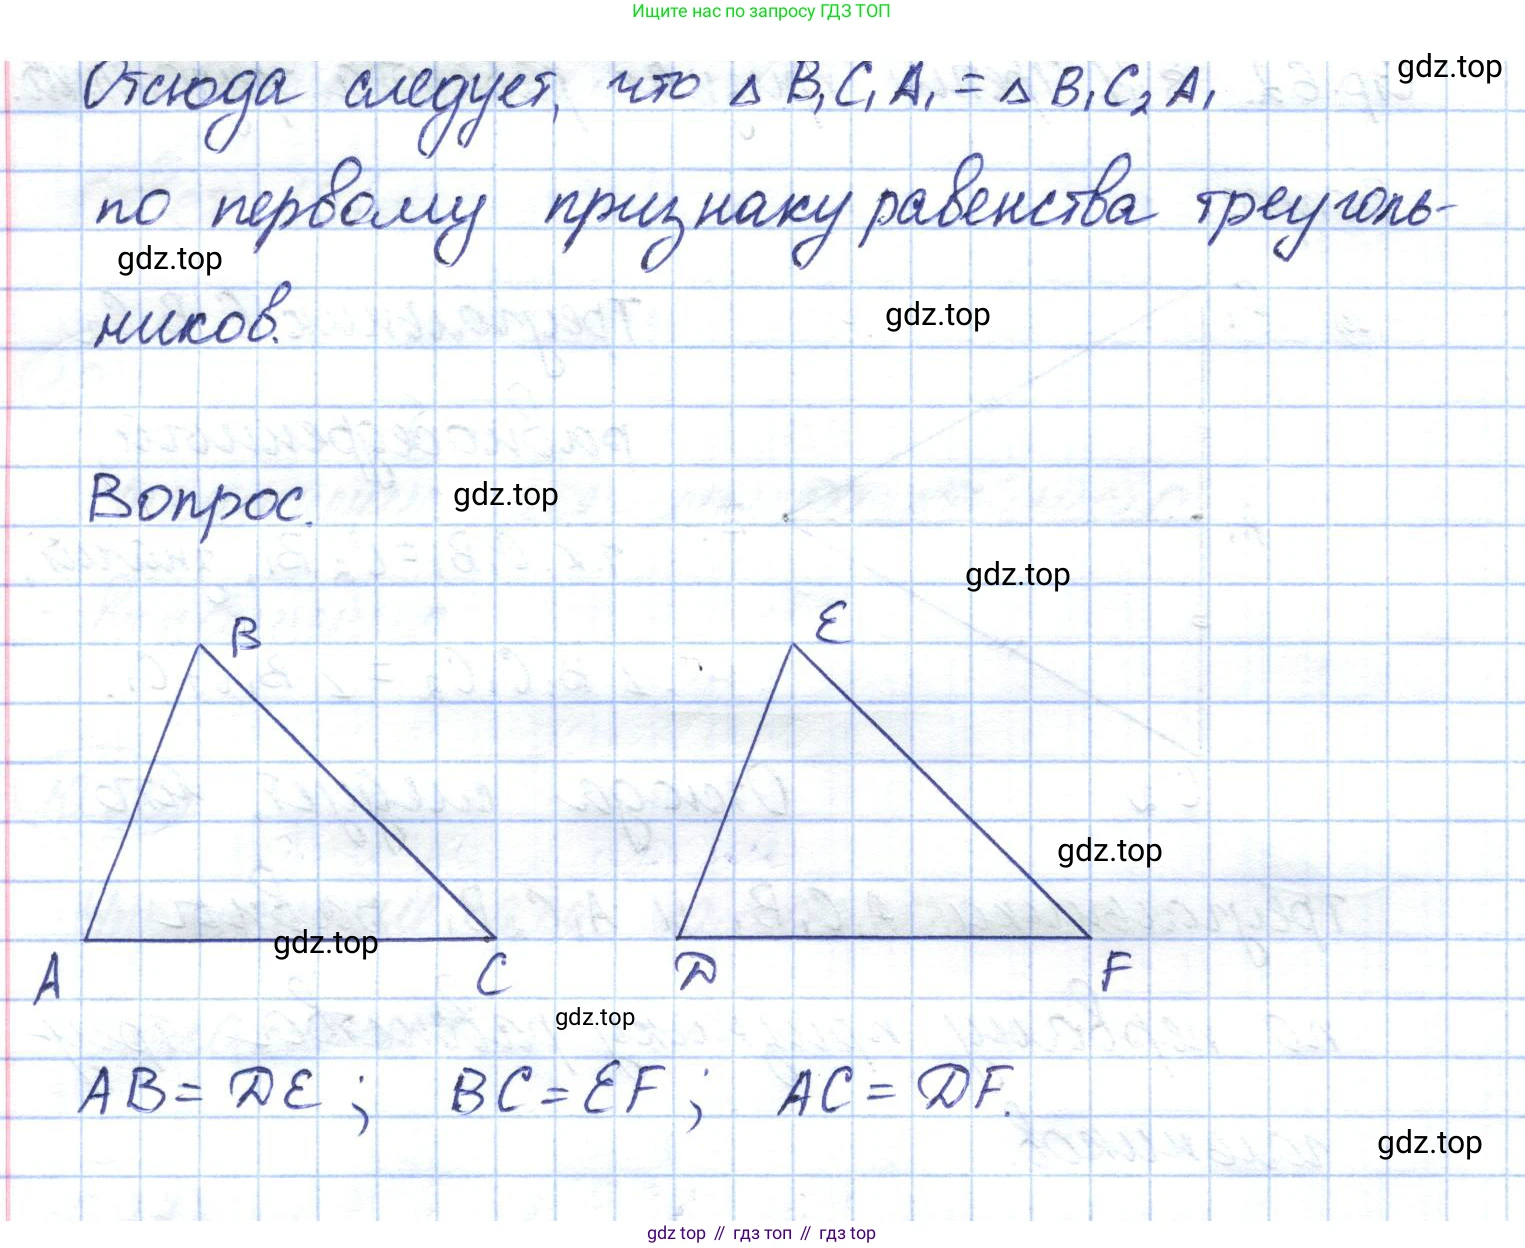 Ищите нас по запросу ГДЗ ТОП
gdz.top
Отсюда следует, что △ B₁C₁A₁ = △ B₁C₂A₁
по первому признаку равенства треуголь-
gdz.top
ников.
gdz.top
Вопрос.
gdz.top
gdz.top
B
E
gdz.top
gdz.top
A
C
D
F
gdz.top
AB = DE ; BC = EF ; AC = DF.
gdz.top
gdz top // гдз топ // гдз top